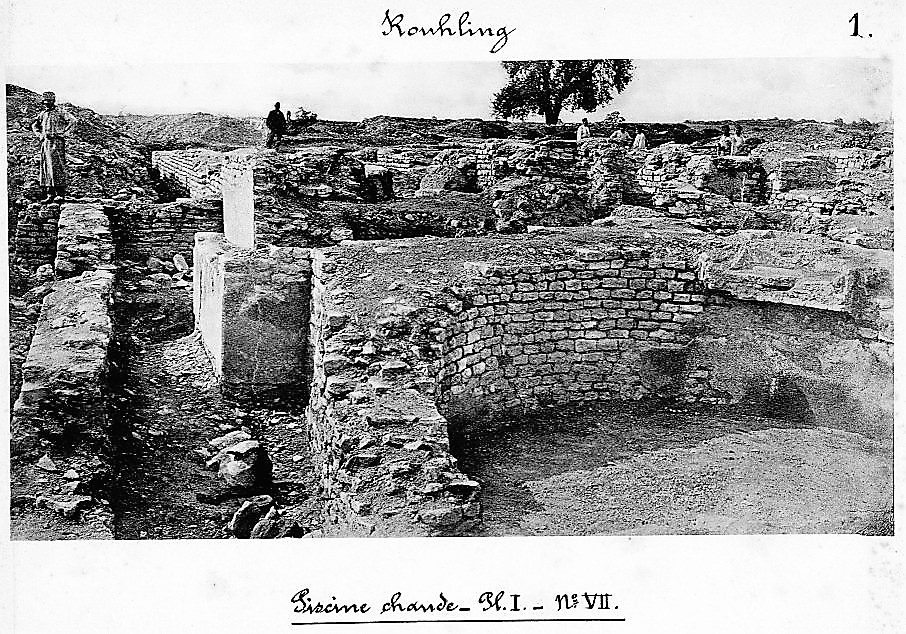 Rouhling
1.
Piscine chaude - Pl. I. - Nº VII.